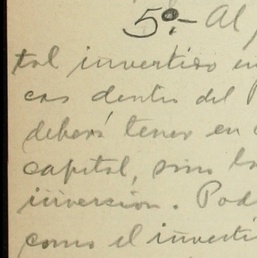 5º.- Al
tal invertido en
cas dentro del
deberá tener en
capital, sino la
inversion. Pod
como el inverti